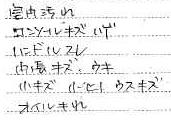 室内汚れ
コンソールキズ ハゲ
ハンドルスレ
内張キズ、ウキ
小キズ ウスキズ
オイルキれ